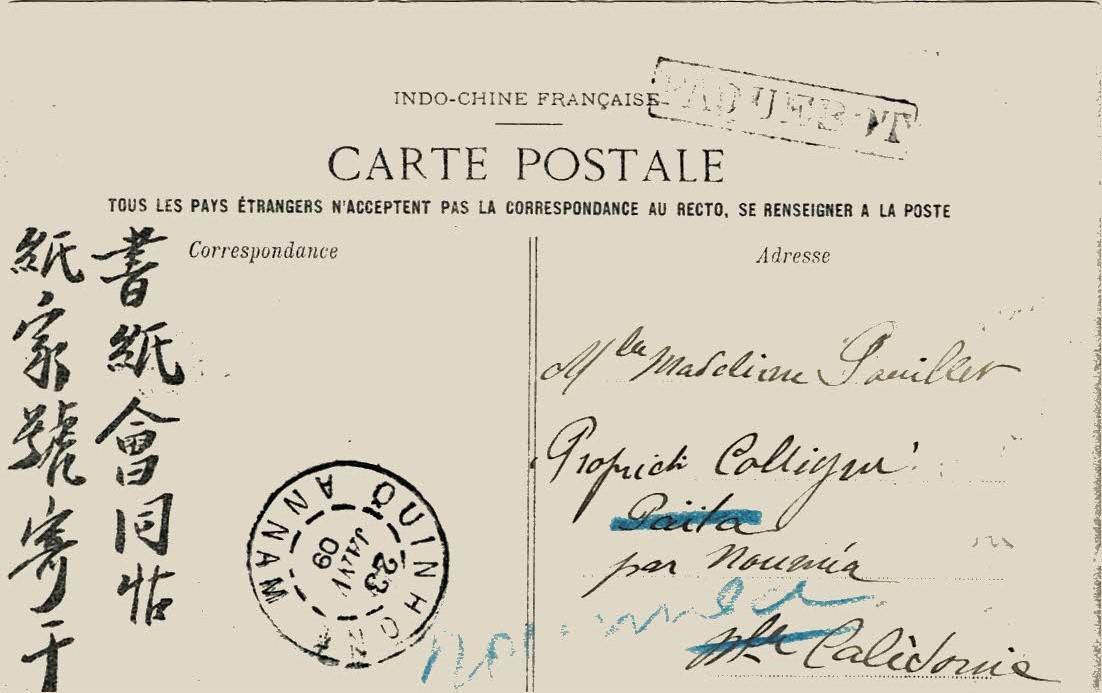 INDO-CHINE FRANÇAISE
PAQUEBOT
CARTE POSTALE
TOUS LES PAYS ÉTRANGERS N'ACCEPTENT PAS LA CORRESPONDANCE AU RECTO, SE RENSEIGNER A LA POSTE
Correspondance
Adresse
書紙會同帖
紙家號寄于
Mlle Madeleine Pouillet
Propriété
Païta
par Nouméa
Nlle Calédonie
QUINHON
ANNAM
23
JANV
09